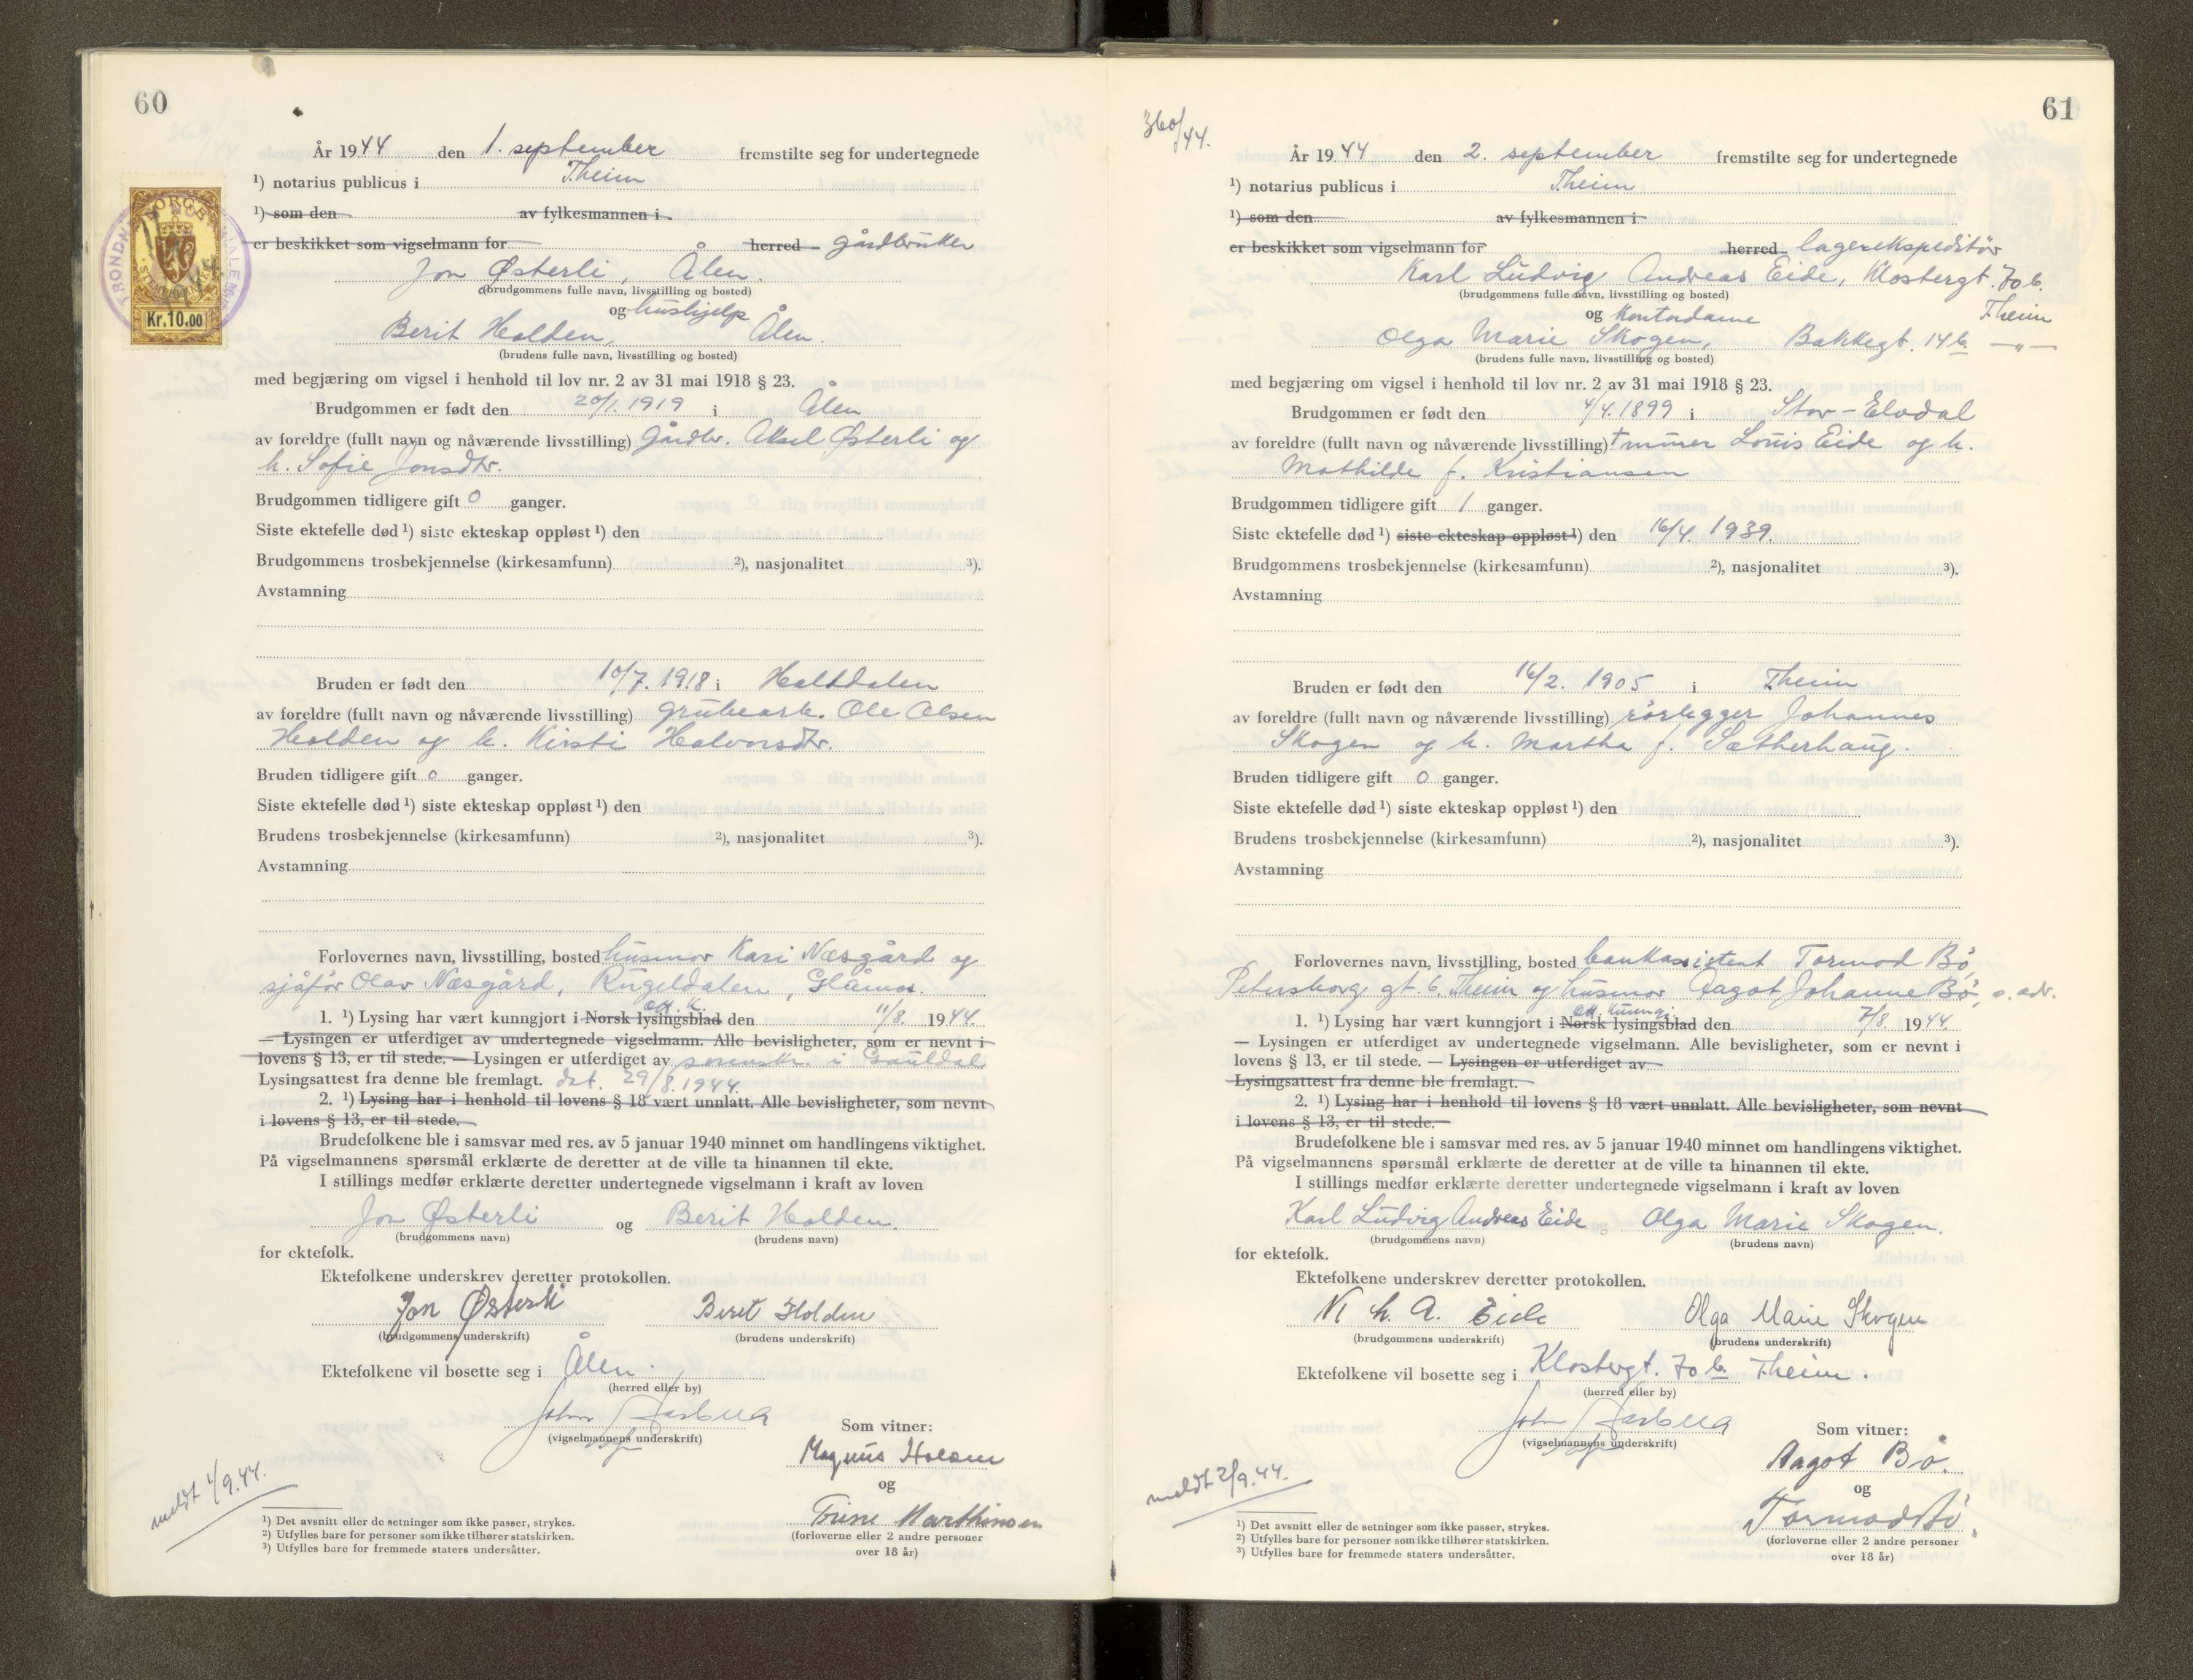 60
År 1944 den 1. september fremstilte seg for undertegnede
¹) notarius publicus i Theim
¹) som den av fylkesmannen i
er beskikket som vigselmann for herred gårdbruker
Jon Østerli, Ålen.
(brudgommens fulle navn, livsstilling og bosted)
og hushjelp
Berit Holden, Ålen.
(brudens fulle navn, livsstilling og bosted)
med begjæring om vigsel i henhold til lov nr. 2 av 31 mai 1918 § 23.
Brudgommen er født den 20/1. 1919 i Ålen
av foreldre (fullt navn og nåværende livsstilling) gårdbr. Aksel Østerli og
h. Sofie Jonsdtr.
Brudgommen tidligere gift 0 ganger.
Siste ektefelle død ¹) siste ekteskap oppløst ¹) den
Brudgommens trosbekjennelse (kirkesamfunn) ²), nasjonalitet ³).
Avstamning
Bruden er født den 10/7. 1918 i Haltdalen
av foreldre (fullt navn og nåværende livsstilling) grubearb. Ole Olsen
Holden og h. Kirsti Halvorsdtr.
Bruden tidligere gift 0 ganger.
Siste ektefelle død ¹) siste ekteskap oppløst ¹) den
Brudens trosbekjennelse (kirkesamfunn) ²), nasjonalitet ³).
Avstamning
Forlovernes navn, livsstilling, bosted husmor Kari Næsgård og
sjåför Olav Næsgård, Rugeldalen, Glåmos.
off. k.
1. ¹) Lysing har vært kunngjort i Norsk lysingsblad den 11/8. 1944.
— Lysingen er utferdiget av undertegnede vigselmann. Alle bevisligheter, som er nevnt i
lovens § 13, er til stede. — Lysingen er utferdiget av sorenskr. i Gauldal
Lysingsattest fra denne ble fremlagt. dat. 29/8. 1944.
2. ¹) Lysing har i henhold til lovens § 18 vært unnlatt. Alle bevisligheter, som nevnt
i lovens § 13, er til stede.
Brudefolkene ble i samsvar med res. av 5 januar 1940 minnet om handlingens viktighet.
På vigselmannens spørsmål erklærte de deretter at de ville ta hinannen til ekte.
I stillings medfør erklærte deretter undertegnede vigselmann i kraft av loven
Jon Østerli og Berit Holden.
(brudgommens navn) (brudens navn)
for ektefolk.
Ektefolkene underskrev deretter protokollen.
Jon Østerli Berit Holden
(brudgommens underskrift) (brudens underskrift)
Ektefolkene vil bosette seg i Ålen.
(herred eller by)
John Aasbua
(vigselmannens underskrift)
Som vitner:
Magnus Holum
og
Trine Marthinsen
(forloverne eller 2 andre personer
over 18 år)
meldt 4/9.44.
¹) Det avsnitt eller de setninger som ikke passer, strykes.
²) Utfylles bare for personer som ikke tilhører statskirken.
³) Utfylles bare for fremmede staters undersåtter.
NORGE
Kr.10.00
61
360/44.
År 1944 den 2. september fremstilte seg for undertegnede
¹) notarius publicus i Theim
¹) som den av fylkesmannen i
er beskikket som vigselmann for herred lagerekspeditör
Karl Ludvig Andreas Eide, Klostergt. 70 b.
(brudgommens fulle navn, livsstilling og bosted)
og kontordame Theim
Olga Marie Skogen, Bakkegt. 14 b —„—
(brudens fulle navn, livsstilling og bosted)
med begjæring om vigsel i henhold til lov nr. 2 av 31 mai 1918 § 23.
Brudgommen er født den 4/4. 1899 i Stor-Elvdal
av foreldre (fullt navn og nåværende livsstilling) † murer Louis Eide og h.
Mathilde f. Kristiansen
Brudgommen tidligere gift 1 ganger.
Siste ektefelle død ¹) siste ekteskap oppløst ¹) den 16/4 1939.
Brudgommens trosbekjennelse (kirkesamfunn) ²), nasjonalitet ³).
Avstamning
Bruden er født den 16/2. 1905 i Theim
av foreldre (fullt navn og nåværende livsstilling) rörlegger Johannes
Skogen og h. Martha f. Sætherhaug.
Bruden tidligere gift 0 ganger.
Siste ektefelle død ¹) siste ekteskap oppløst ¹) den
Brudens trosbekjennelse (kirkesamfunn) ²), nasjonalitet ³).
Avstamning
Forlovernes navn, livsstilling, bosted bankassistent Tormod Bö,
Petersborg gt. 6. Theim og husmor Aagot Johanne Bö, s. adr.
off. kunng.
1. ¹) Lysing har vært kunngjort i Norsk lysingsblad den 7/8. 1944.
— Lysingen er utferdiget av undertegnede vigselmann. Alle bevisligheter, som er nevnt i
lovens § 13, er til stede. — Lysingen er utferdiget av
Lysingsattest fra denne ble fremlagt.
2. ¹) Lysing har i henhold til lovens § 18 vært unnlatt. Alle bevisligheter, som nevnt
i lovens § 13, er til stede.
Brudefolkene ble i samsvar med res. av 5 januar 1940 minnet om handlingens viktighet.
På vigselmannens spørsmål erklærte de deretter at de ville ta hinannen til ekte.
I stillings medfør erklærte deretter undertegnede vigselmann i kraft av loven
Karl Ludvig Andreas Eide og Olga Marie Skogen.
(brudgommens navn) (brudens navn)
for ektefolk.
Ektefolkene underskrev deretter protokollen.
A. Eide Olga Marie Skogen
(brudgommens underskrift) (brudens underskrift)
Ektefolkene vil bosette seg i Klostergt. 70 b. Theim.
(herred eller by)
John Aasbua
(vigselmannens underskrift)
Som vitner:
Aagot Bö.
og
Tormod Bö.
(forloverne eller 2 andre personer
over 18 år)
meldt 2/9.44.
¹) Det avsnitt eller de setninger som ikke passer, strykes.
²) Utfylles bare for personer som ikke tilhører statskirken.
³) Utfylles bare for fremmede staters undersåtter.